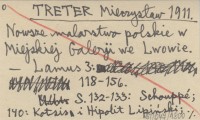 TRETER Mieczysław 1911.
Nowsze malarstwo polskie w
Miejskiej Galerji we Lwowie.
— Lamus 3:
118-156.
S. 132-133: Schouppé;
140: Kotsis i Hipolit Lipiński;